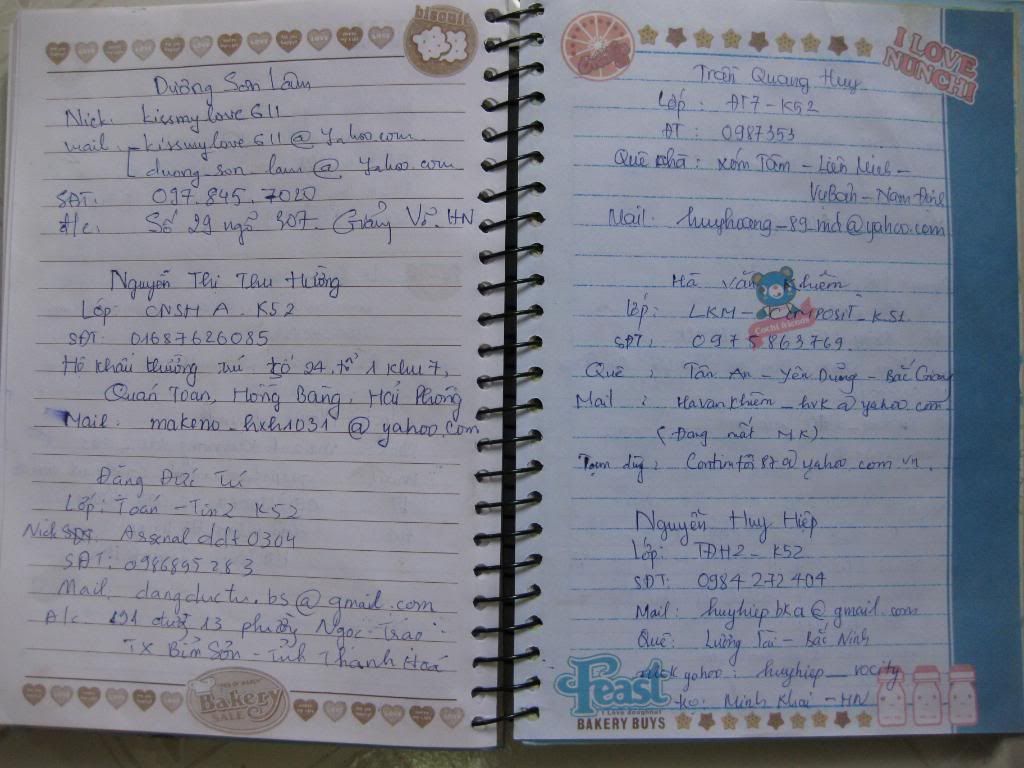 biscuit
Dương Sơn Lâm
Nick: kissmylove611
mail: - kissmylove611@Yahoo.com
duong_son_lam@Yahoo.com
SĐT: 097.845.7020
đ/c: Số 29 ngõ 307. Giảng Võ. HN
Nguyễn Thị Thu Hường
Lớp CNSH A - K52
SĐT: 01687626085
Hộ khẩu thường trú số 24, tổ 1 khu 7,
Quán Toan, Hồng Bàng, Hải Phòng
Mail: makeno_hxh1031@yahoo.com
Đặng Đức Tú
Lớp: Toán - Tin2 K52
Nick Assenal ddt 0304
SĐT: 0986895283
Mail: dangductu.bs@gmail.com
Đ/c: 191 đường 13 phường Ngọc Trạo
TX Bỉm Sơn - Tỉnh Thanh Hoá
Bakery
SALE
I LOVE
NUNCHI
Trần Quang Huy
Lớp: ĐT7 - K52
ĐT: 0987353
Quê nhà: xóm Tâm - Liên Minh -
Vụ Bản - Nam Định
Mail: huyhoang_89_md@yahoo.com
Hà Văn Khiêm
Lớp: LKM - COMPOSIT - K51
Cochi friends
SĐT: 0975863769.
Quê: Tân An - Yên Dũng - Bắc Giang
Mail: Havankhiem_hvk@yahoo.com
(Đang mất MK)
Tạm dùng: Contintos87@yahoo.com.vn.
Nguyễn Huy Hiệp
Lớp: TĐH2 - K52
SĐT: 0984272404
Mail: huyhiep.bka@gmail.com
Quê: Lương Tài - Bắc Ninh
nick yahoo: huyhiep_vocity
Minh Khai - HN
Feast
I Love doughnut
BAKERY BUYS